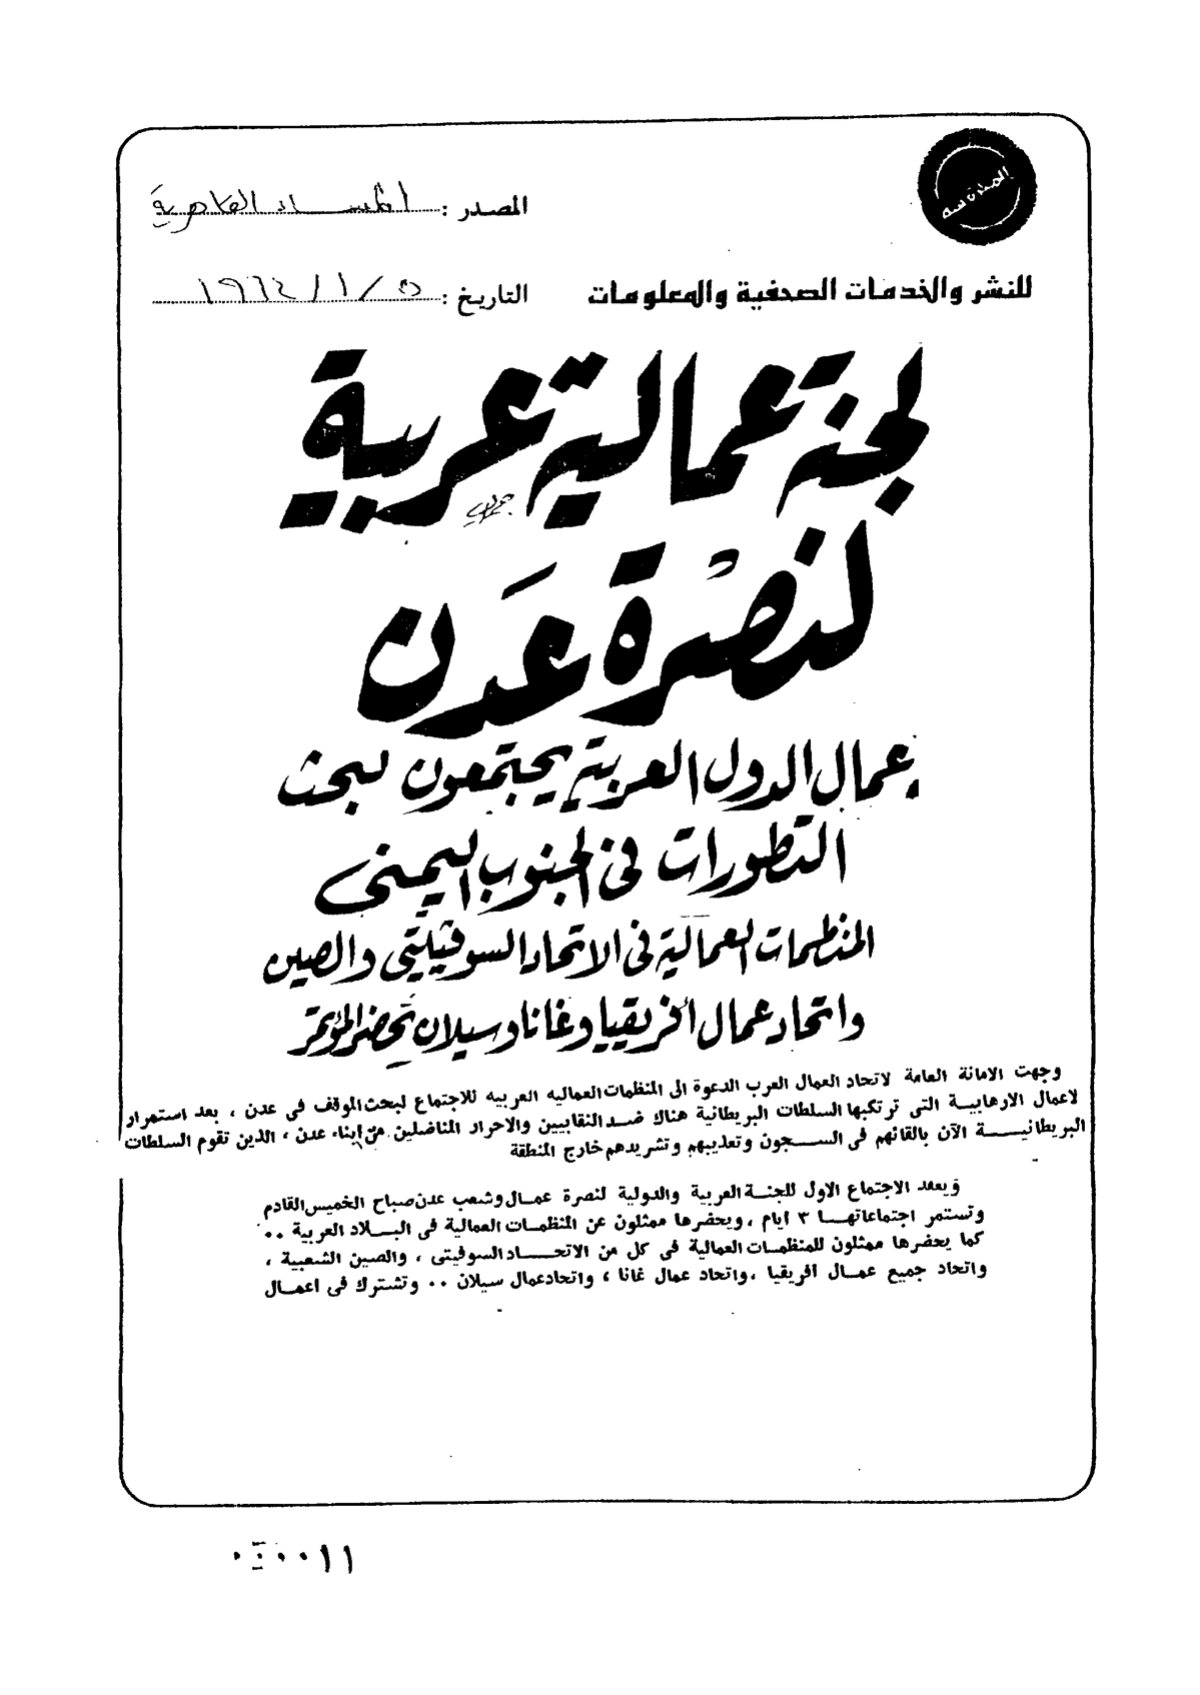 المصدر : المساء القاهرية
للنشر والخدمات الصحفية والمعلومات
التاريخ : ٥ / ١ / ١٩٦٤
لجنة عمالية عربية
لنصْرة عَدن
عمال الدول العربية يجتمعون لبحث
التطورات فى الجنوب اليمنى
المنظمات العمالية فى الاتحاد السوفيتى والصين
واتحاد عمال أفريقيا وغانا وسيلان تحضر المؤتمر
وجهت الامانة العامة لاتحاد العمال العرب الدعوة الى المنظمات العماليه العربيه للاجتماع لبحث الموقف فى عدن ، بعد استمرار
لاعمال الارهابية التى ترتكبها السلطات البريطانية هناك ضد النقابيين والاحرار المناضلين من ابناء عدن ، الذين تقوم السلطات
البريطانية الآن بالقائهم فى السجون وتعذيبهم وتشريدهم خارج المنطقة
ويعقد الاجتماع الاول للجنة العربية والدولية لنصرة عمال وشعب عدن صباح الخميس القادم
وتستمر اجتماعاتها ٣ ايام ، ويحضرها ممثلون عن المنظمات العمالية فى البلاد العربية ..
كما يحضرها ممثلون للمنظمات العمالية فى كل من الاتحاد السوفيتى ، والصين الشعبية ،
واتحاد جميع عمال افريقيا ، واتحاد عمال غانا ، واتحاد عمال سيلان .. وتشترك فى اعمال